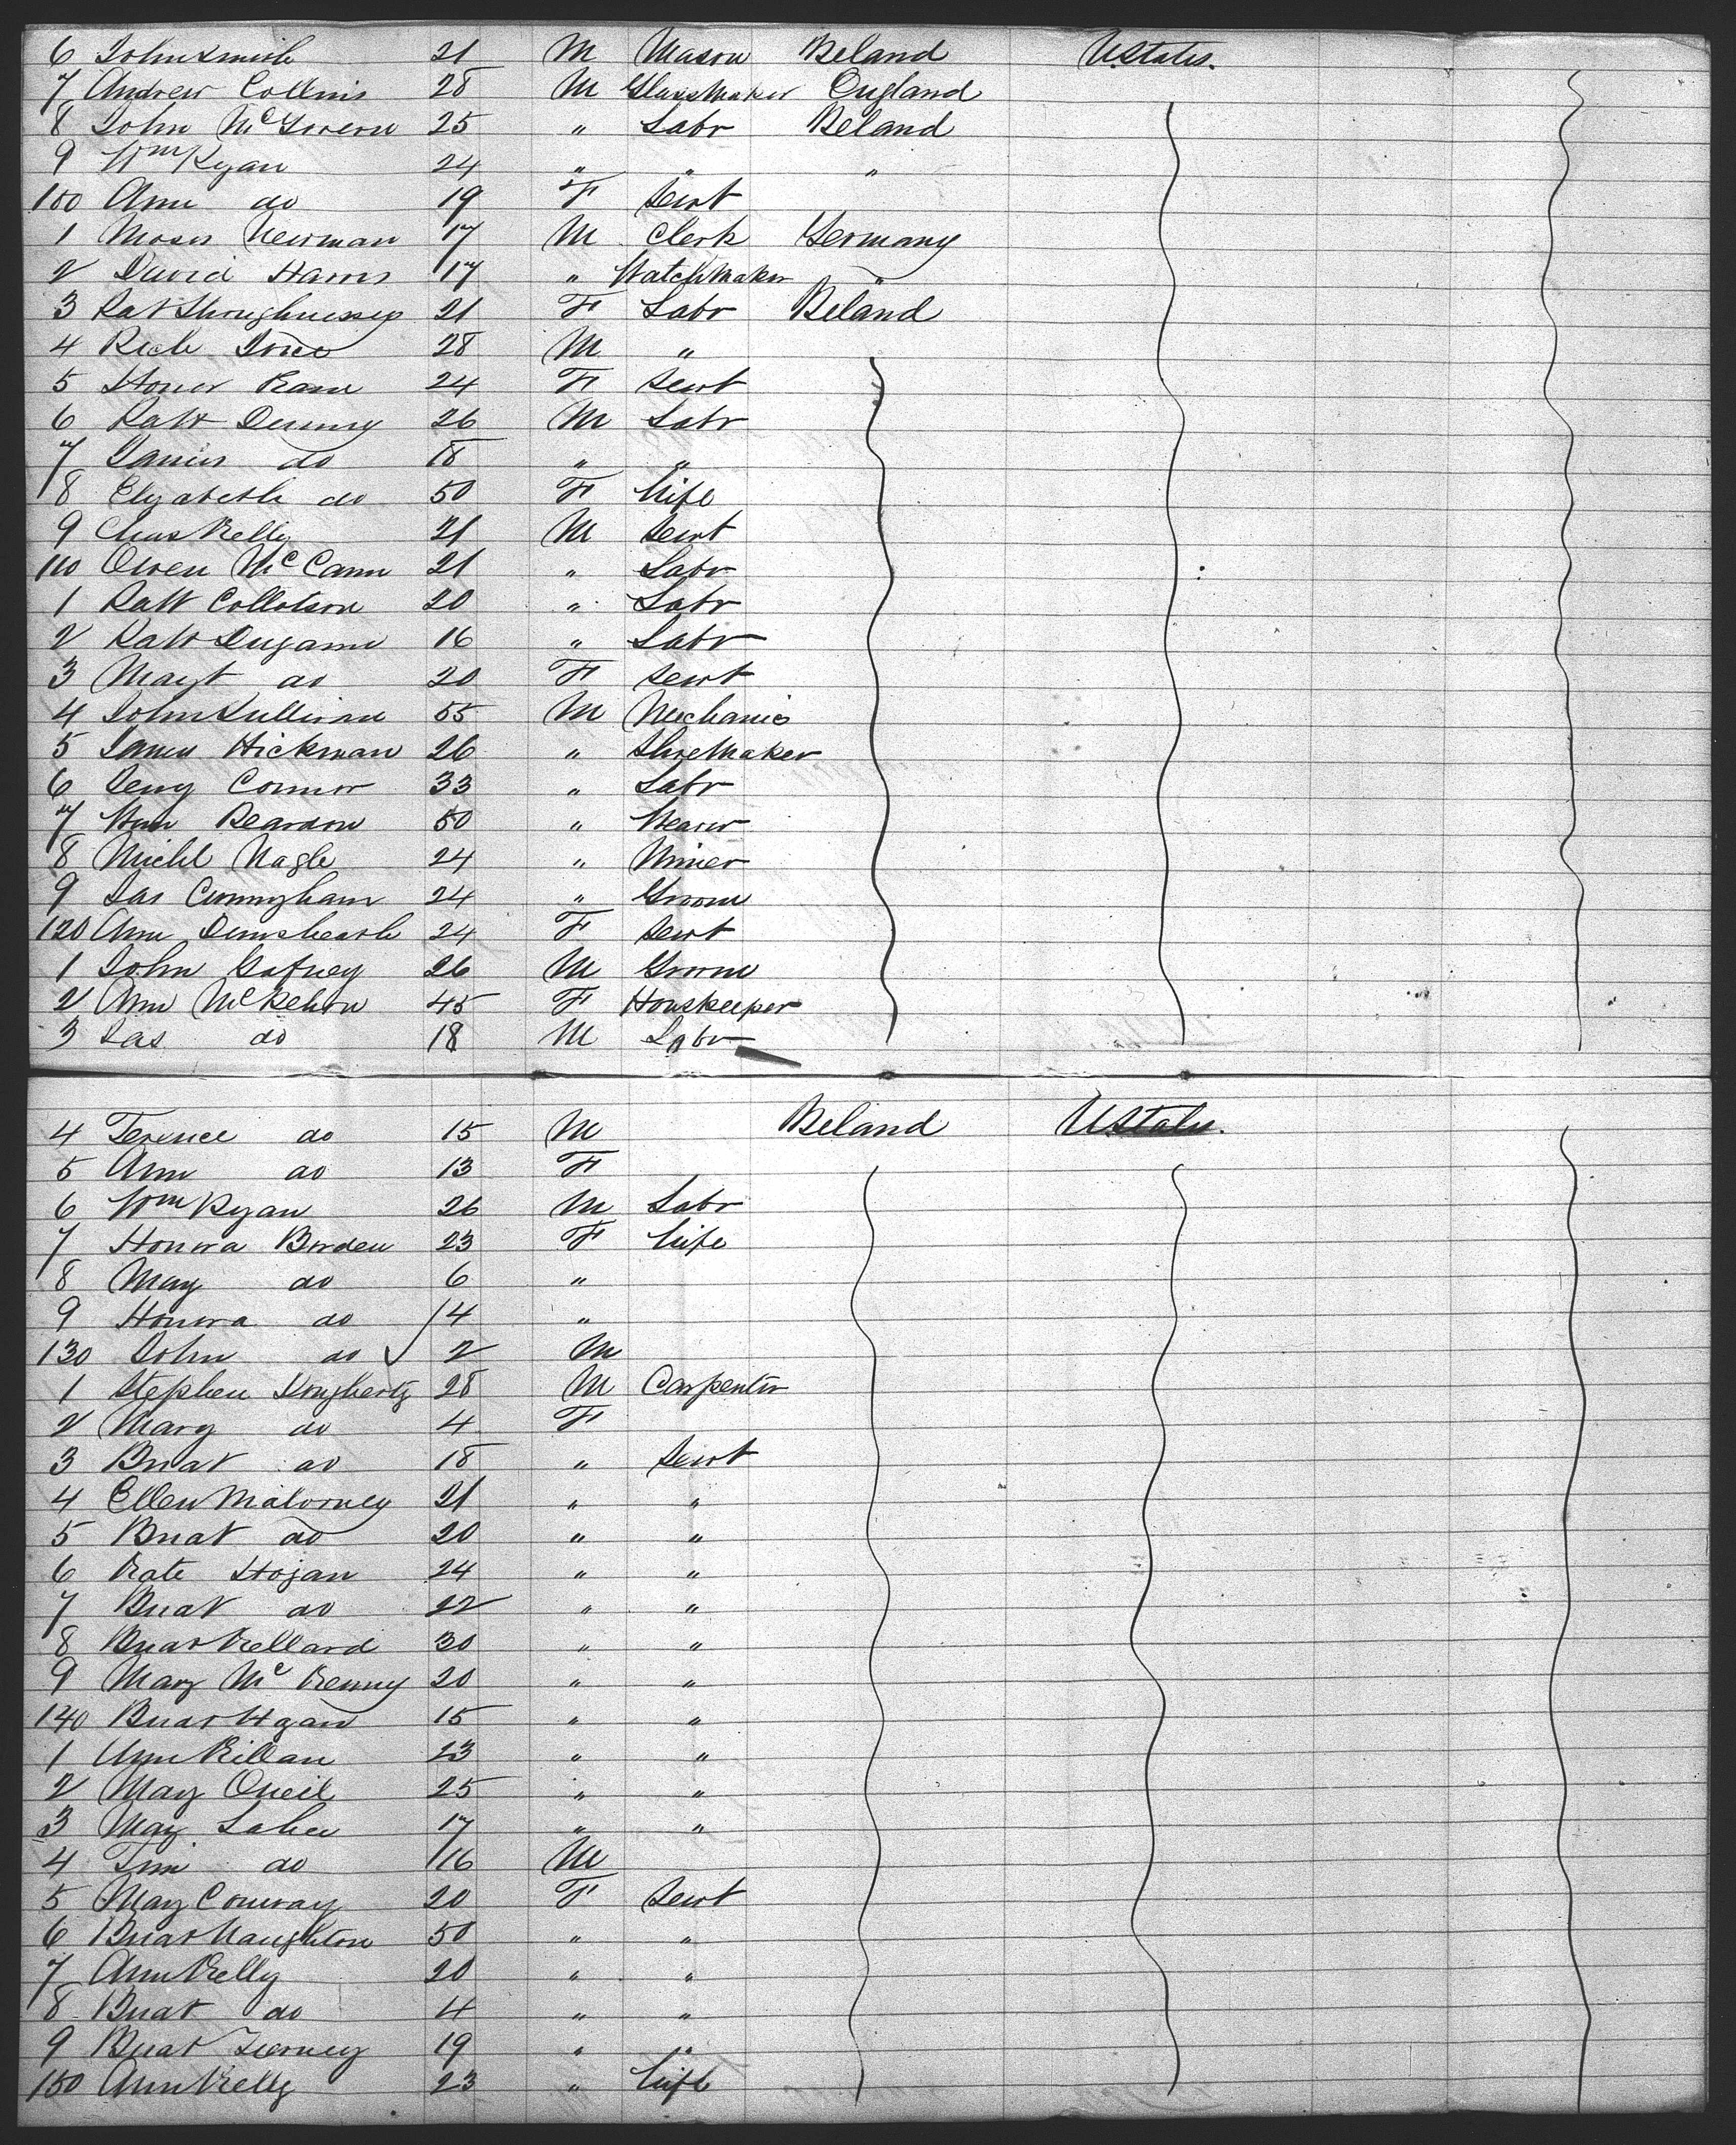 6 John Smith 21 M Mason Ireland U States.
7 Andrew Collins 28 M Glassmaker England
8 John McGovern 25 " Labr Ireland
9 Wm Ryan 24 " " "
100 Ann do 19 F Servt
1 Moses Newman 17 M Clerk Germany
2 David Harris 17 " Watchmaker "
3 Pat Shoughnessy 21 F Labr Ireland
4 Rich 28 M "
5 Honor Kane 24 F Servt
6 Patk Denny 26 M Labr
7 James do 18 " "
8 Elizabeth do 50 F Wife
9 Chas Kelly 21 M Servt
110 Owen McCann 21 " Labr
1 Patk Collotson 20 " Labr
2 Patk Dugann 16 " Labr
3 Margt do 20 F Servt
4 John Sullivan 55 M Mechanic
5 James Hickman 26 " Shoemaker
6 Connor 33 " Labr
7 Wm Reardon 50 " Weaver
8 Michl Nagle 24 " Miner
9 Jas Cunnyham 24 " Groom
120 Ann 24 F Servt
1 John Gafney 26 M Groom
2 Ann 45 F Houskeeper
3 Jas do 18 M Labr
4 Terence do 15 M Ireland U States.
5 Ann do 13 F
6 Wm Ryan 26 M Labr
7 Honora Borden 23 F Wife
8 May do 6 "
9 Honora do 4 "
130 John do 2 M
1 Stephen Dougherty 28 M Carpenter
2 Mary do 4 F
3 Bridt do 18 " Servt
4 Ellen Malorney 21 " "
5 Bridt do 20 " "
6 Kate Hogan 24 " "
7 Bridt do 22 " "
8 Bridt Kellard 30 " "
9 Mary McKenny 20 " "
140 Bridt Hgan 15 " "
1 Ann Killan 23 " "
2 May Oneil 25 " "
3 May Lahee 17 " "
4 Tim do 16 M
5 May Conway 20 F Servt
6 Bridt Naughton 50 " "
7 Ann Kelly 20 " "
8 Bridt do 4 " "
9 Bridt Tierney 19 " "
150 Ann Kelly 23 " Wife